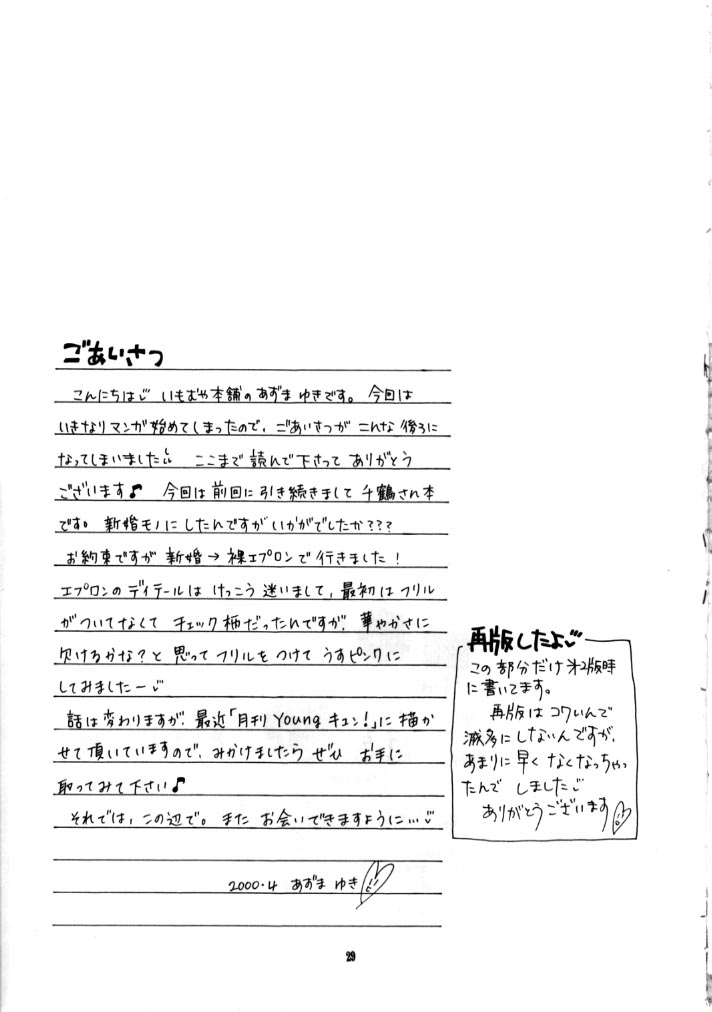 ごあいさつ
こんにちは♡ いもおや本舗のあずま ゆきです。 今回は
いきなりマンガ始めてしまったので、ごあいさつが こんな後ろに
なってしまいました ここまで 読んで下さって ありがとう
ございます♪ 今回は前回に引き続きまして 千鶴さん本
です。新婚モノにしたんですがいかがでしたか???
お約束ですが 新婚→裸エプロンで行きました!
エプロンのディテールは けっこう 迷いまして、最初はフリル
がついてなくて チェック柄だったんですが、華やかさに
欠けるかな?と 思って フリルをつけて うすピンクに
してみましたー♡
話は変わりますが、最近「月刊Youngキュン!」に描か
せて頂いていますので、みかけましたら ぜひ お手に
取ってみて下さい♪
それでは、この辺で。また お会いできますように…♡
2000.4 あずま ゆき
再版したよ♡
この部分だけ第2版時
に書いてます。
再版はコワいんで
滅多にしないんですが、
あまりに早く なくなっちゃっ
たんで しました♡
ありがとうございます
29